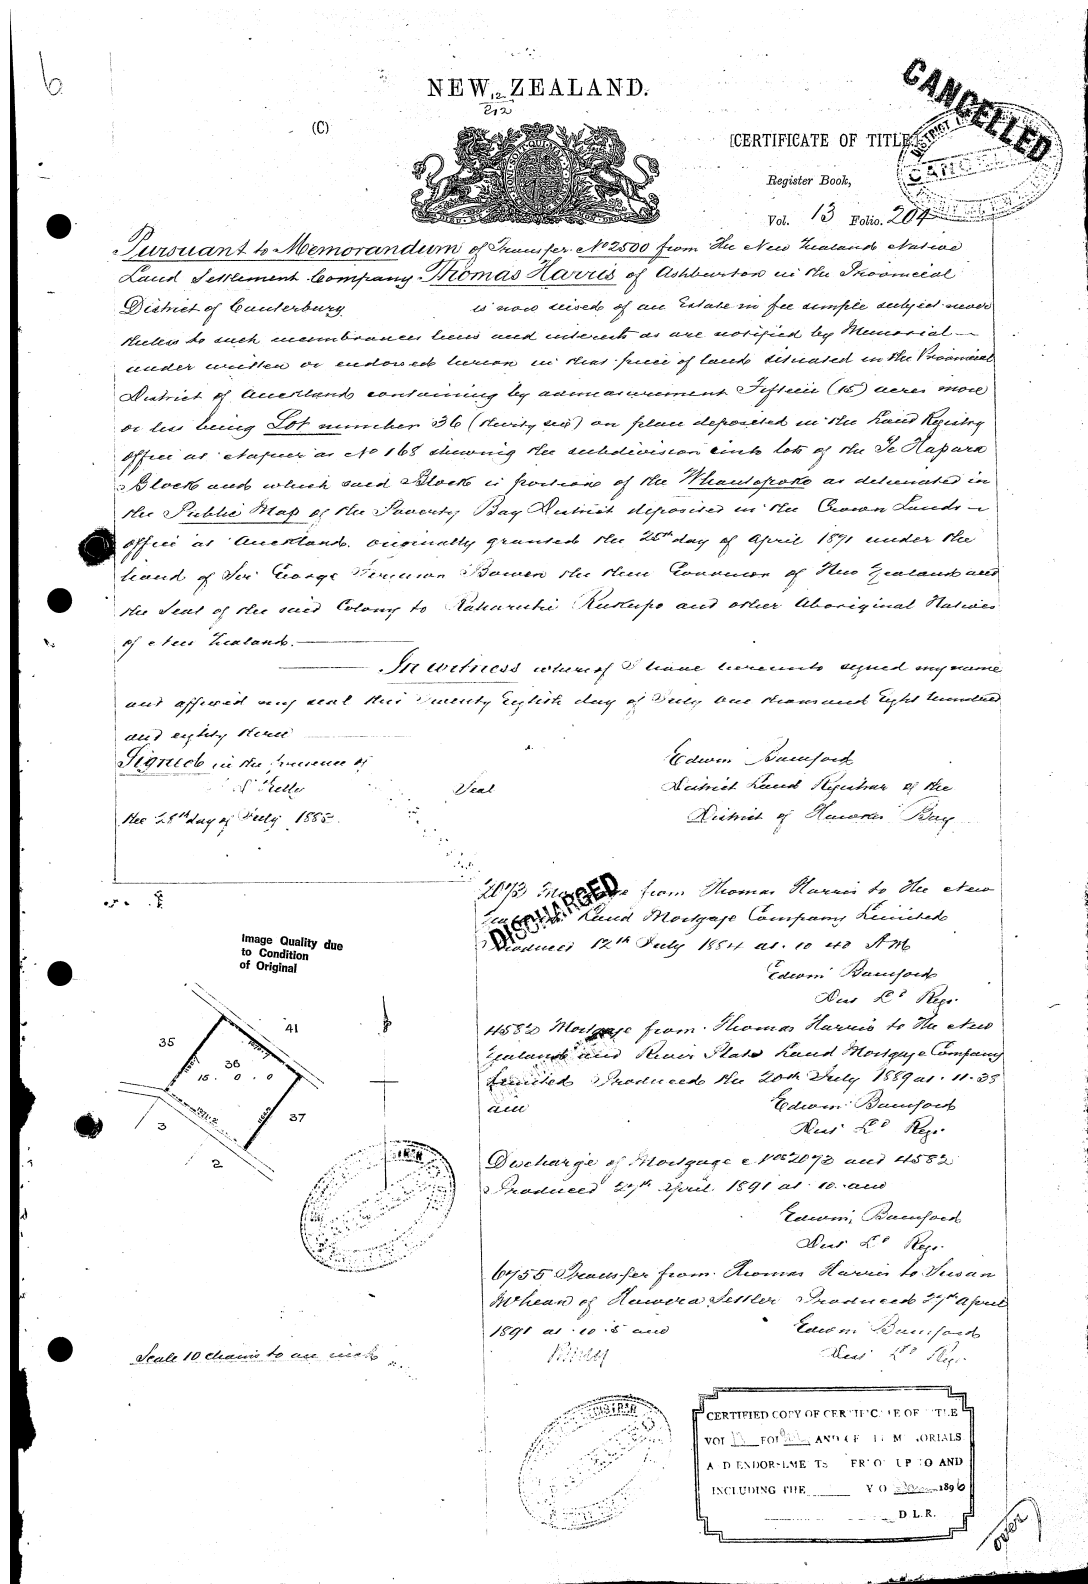 6
NEW ZEALAND.
12
212
(C)
CANCELLED
[CERTIFICATE OF TITLE.]
CANCELLED
Register Book,
Vol. 13 Folio. 204
Pursuant to Memorandum of Transfer No 2500 from The New Zealand Native
Land Settlement Company Thomas Harris of Ashburton in the Provincial
District of Canterbury is now seised of an Estate in fee simple subject never
theless to such incumbrances liens and interests as are notified by Memorial
under written or endorsed hereon in that piece of land situated in the Provincial
District of Auckland containing by admeasurement Fifteen (15) acres more
or less being Lot number 36 (thirty six) on plan deposited in the Land Registry
office at Napier as No 168 shewing the subdivision into lots of the Te Hapara
Block and which said Block is portion of the Whataupoko as delineated in
the Public Map of the Poverty Bay District deposited in the Crown Lands
office at Auckland originally granted the 25th day of April 1871 under the
hand of Sir George Ferguson Bowen the then Governor of New Zealand and
the Seal of the said Colony to Raharuhi Rukupo and other Aboriginal Natives
of New Zealand.
In witness whereof I have hereunto signed my name
and affixed my seal this Twenty Eighth day of July one thousand Eight hundred
and eighty three
Signed in the presence of
Edwin Bamford
Seal
District Land Registrar of the
the 28th day of July 1883.
District of Hawkes Bay
DISCHARGED
2073 Mortgage from Thomas Harris to The New
Land Mortgage Company Limited
Produced 12th July 1884 at 10 40 AM
Edwin Bamford
Dist Ld Regr.
Image Quality due
to Condition
of Original
35
41
36
15. 0. 0
37
3
2
4582 Mortgage from Thomas Harris to The New
Zealand and River Plate Land Mortgage Company
Limited Produced the 20th July 1889 at 11.35
am
Edwin Bamford
Dist Ld Regr.
Discharge of Mortgage Nos 2073 and 4582
Produced 27th April 1891 at 10. am
Edwin Bamford
Dist Ld Regr.
6755 Transfer from Thomas Harris to Susan
McLean of Hawera Settler Produced 27th April
1891 at 10.5 am
Edwin Bamford
Dist Ld Regr.
Scale 10 chains to an inch
CERTIFIED COPY OF CERTIFICATE OF TITLE
VOL 13 FOL 204 AND OF ALL MEMORIALS
AND ENDORSEMENTS PRIOR UP TO AND
INCLUDING THE 1896
D L.R.
over